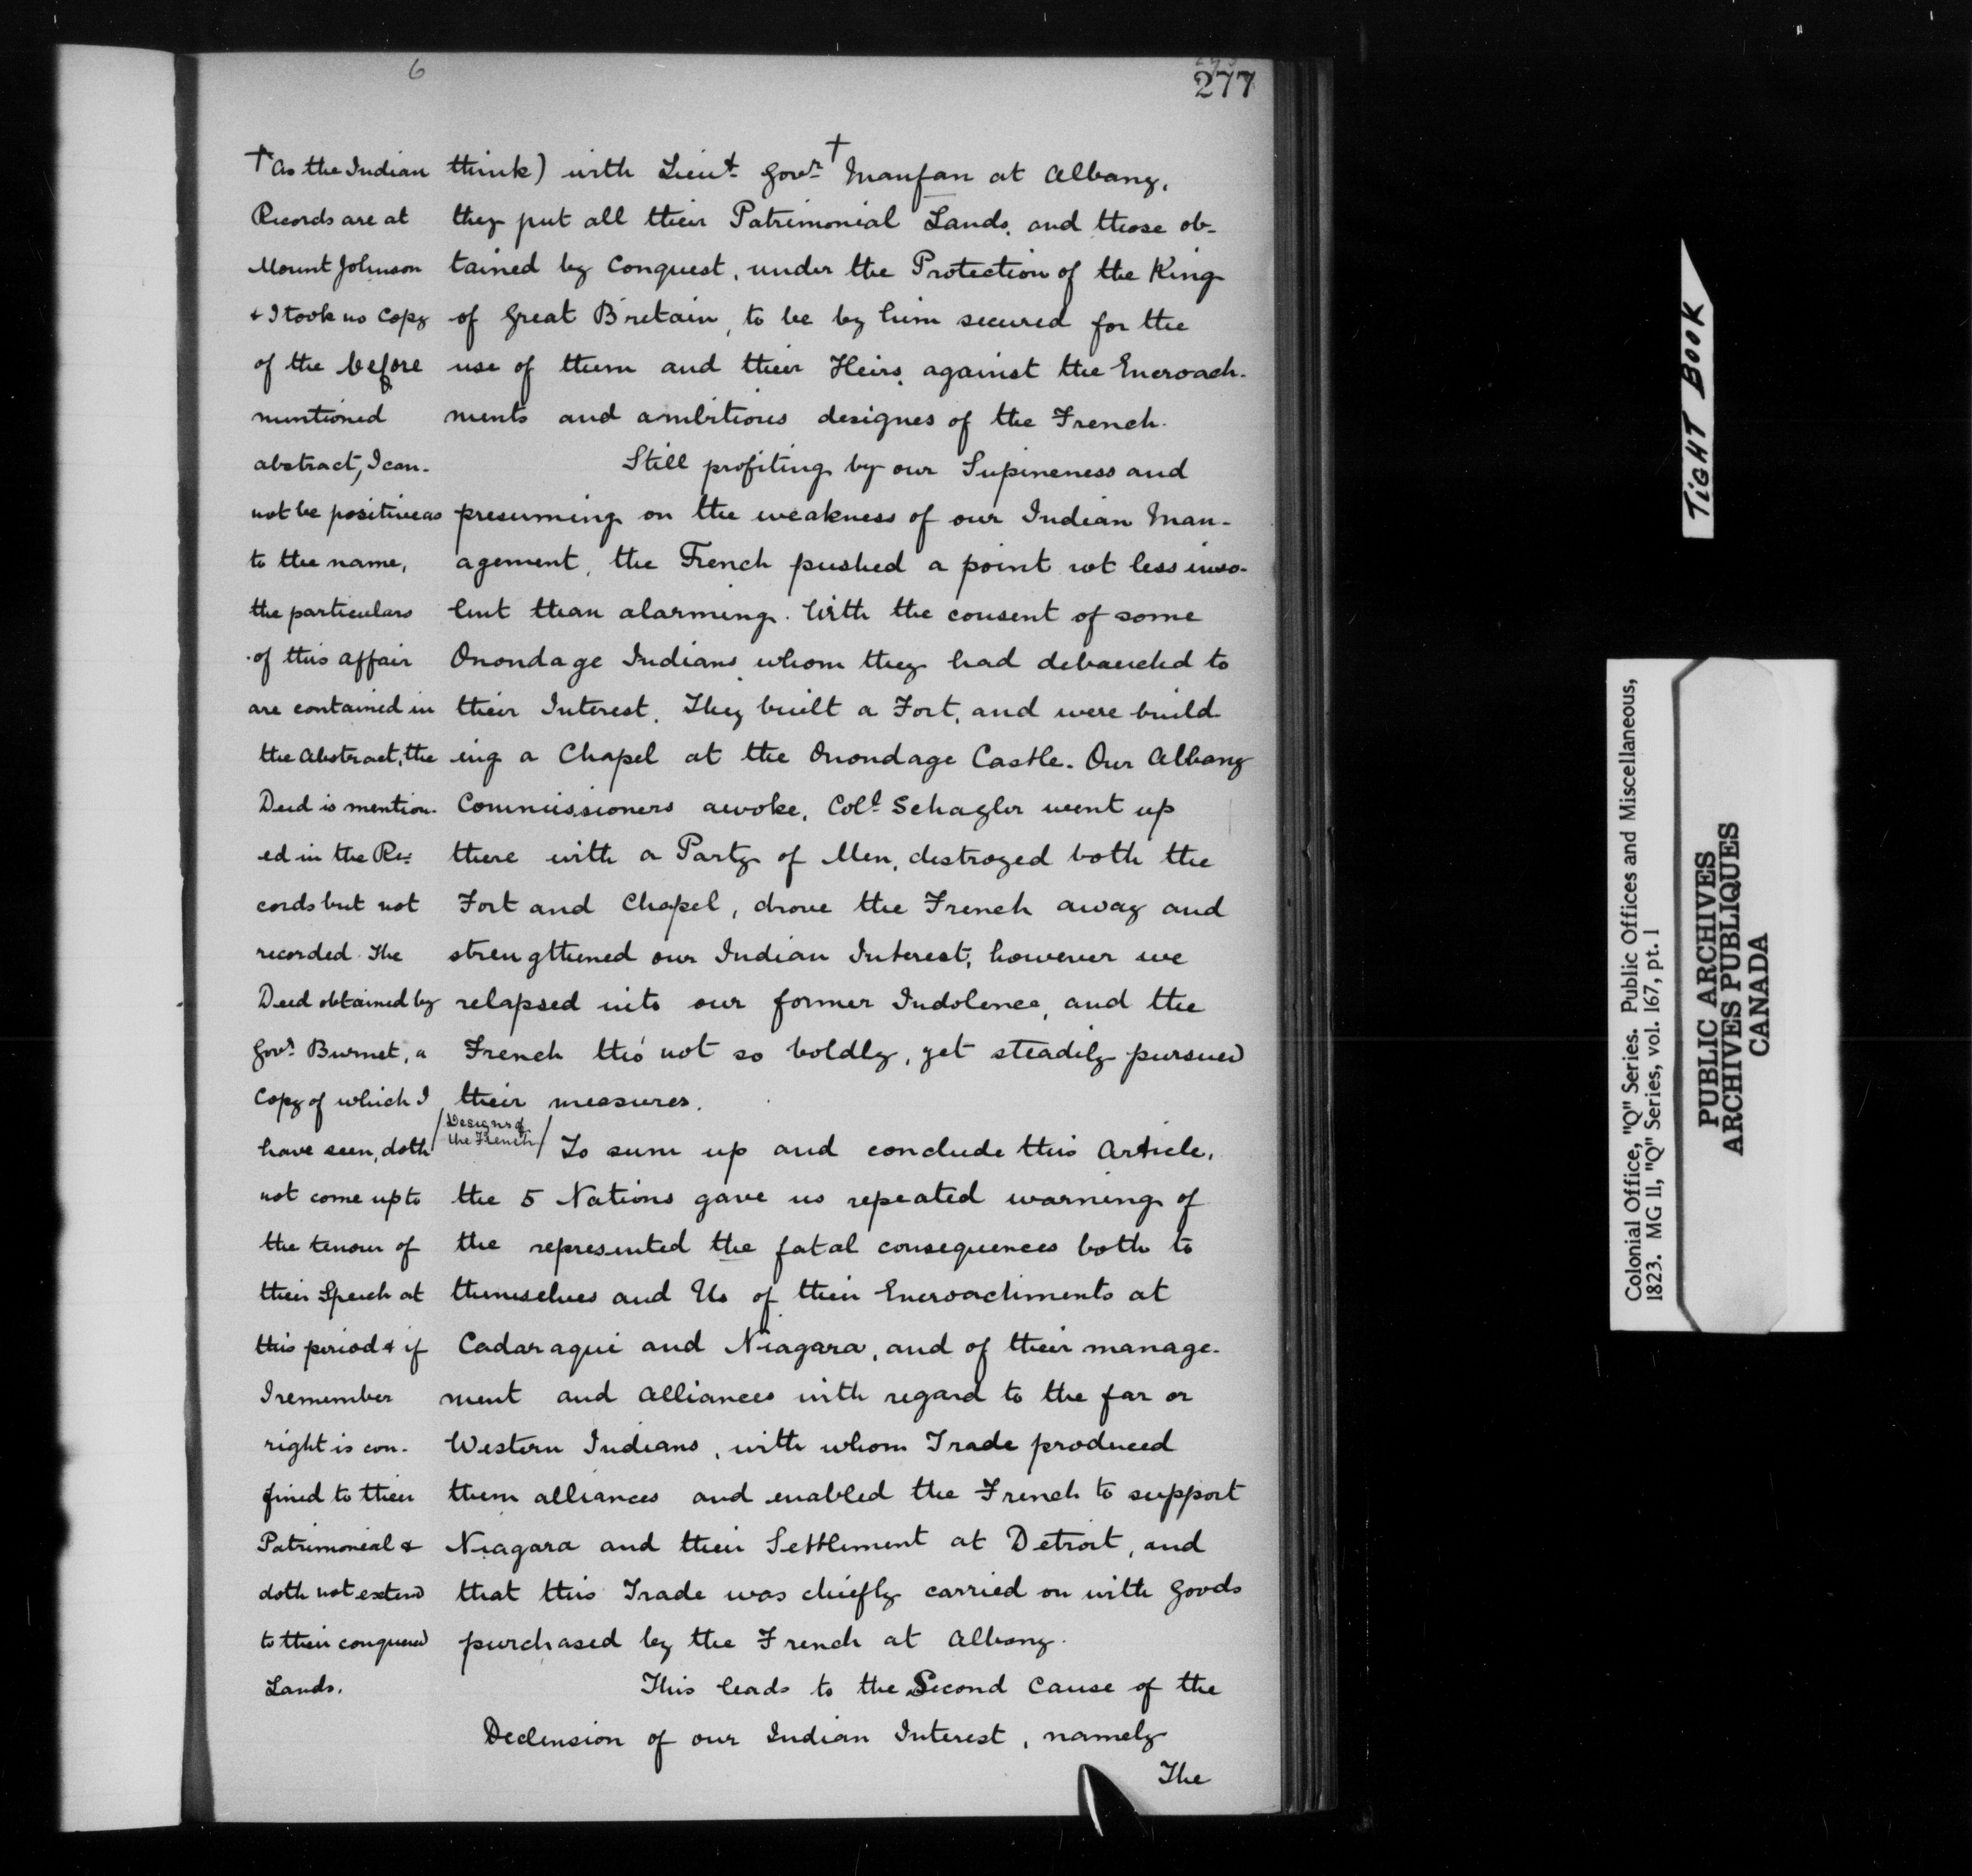 6
277
† As the Indian
Records are at
Mount Johnson
& I took no Copy
of the before
mentioned
abstract, I can-
not be positive as
to the name,
the particulars
of this affair
are contained in
the Abstract, the
Deed is mention-
ed in the Re-
cords but not
recorded. The
Deed obtained by
Govr. Burnet, a
Copy of which I
have seen, doth
not come up to
the tenour of
their Speech at
this period & if
I remember
right is con-
fined to their
Patrimonial &
doth not extend
to their conquered
Lands.
think) with Lieut. Govr. † Manfan at Albany,
they put all their Patrimonial Lands, and those ob-
tained by Conquest, under the Protection of the King
of Great Britain, to be by him secured for the
use of them and their Heirs, against the Encroach-
ments and ambitious designes of the French.
Still profiting by our Supineness and
presuming on the weakness of our Indian Man-
agement, the French pushed a point not less inso-
lent than alarming. With the consent of some
Onondage Indians whom they had debauched to
their Interest. They built a Fort, and were build-
ing a Chapel at the Onondage Castle. Our Albany
Commissioners awoke, Coll. Schayler went up
there with a Party of Men, destroyed both the
Fort and Chapel, drove the French away and
strengthened our Indian Interest, however we
relapsed into our former Indolence, and the
French tho' not so boldly, yet steadily pursued
their measures.
/Designs of
the French/
To sum up and conclude this Article,
the 5 Nations gave us repeated warning of
the represented the fatal consequences both to
themselves and Us of their Encroachments at
Cadaraqui and Niagara, and of their manage-
ment and Alliances with regard to the far or
Western Indians, with whom Trade produced
them alliances and enabled the French to support
Niagara and their Settlement at Detroit, and
that this Trade was chiefly carried on with Goods
purchased by the French at Albany.
This leads to the Second Cause of the
Declension of our Indian Interest, namely
The
TIGHT BOOK
Colonial Office, "Q" Series. Public Offices and Miscellaneous,
1823. MG 11, "Q" Series, vol. 167, pt. 1
PUBLIC ARCHIVES
ARCHIVES PUBLIQUES
CANADA